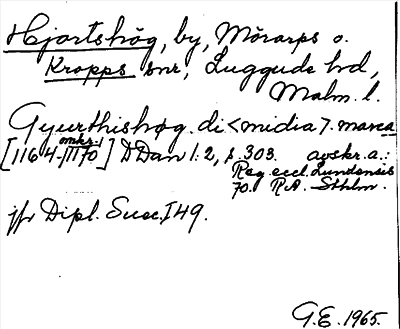 Hjortshög, by, Mörarps o.
Kropps snr, Luggude hd,
Malm. l.
Gyurthishøg. di<midia>. marca
[1164-omkr. 1170] DDan 1:2, s. 303. avskr. a.:
Reg. eccl. Lundensis
70. R.A. Sthlm.
jfr Dipl. Suec. I 49.
G.E. 1965.